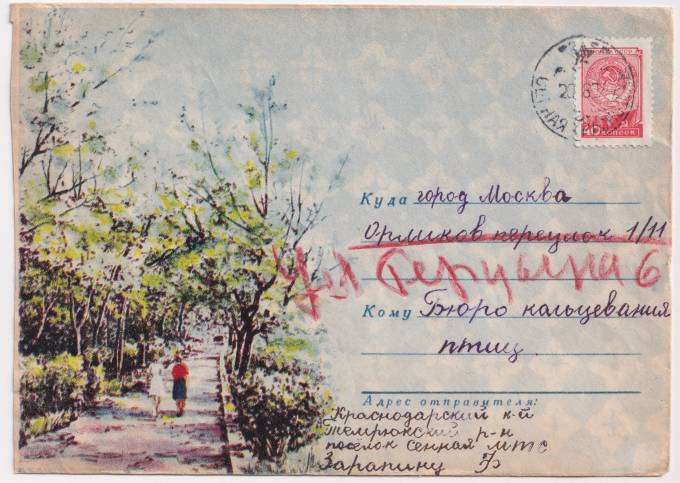 40 копеек
Куда город Москва
Орликов переулок 1/11
Ул Герцына 6
Кому Бюро кольцевания
птиц.
Адрес отправителя:
Краснодарский к-й
Темрюкский р-н
посёлок Сенная МТС
Зарапину